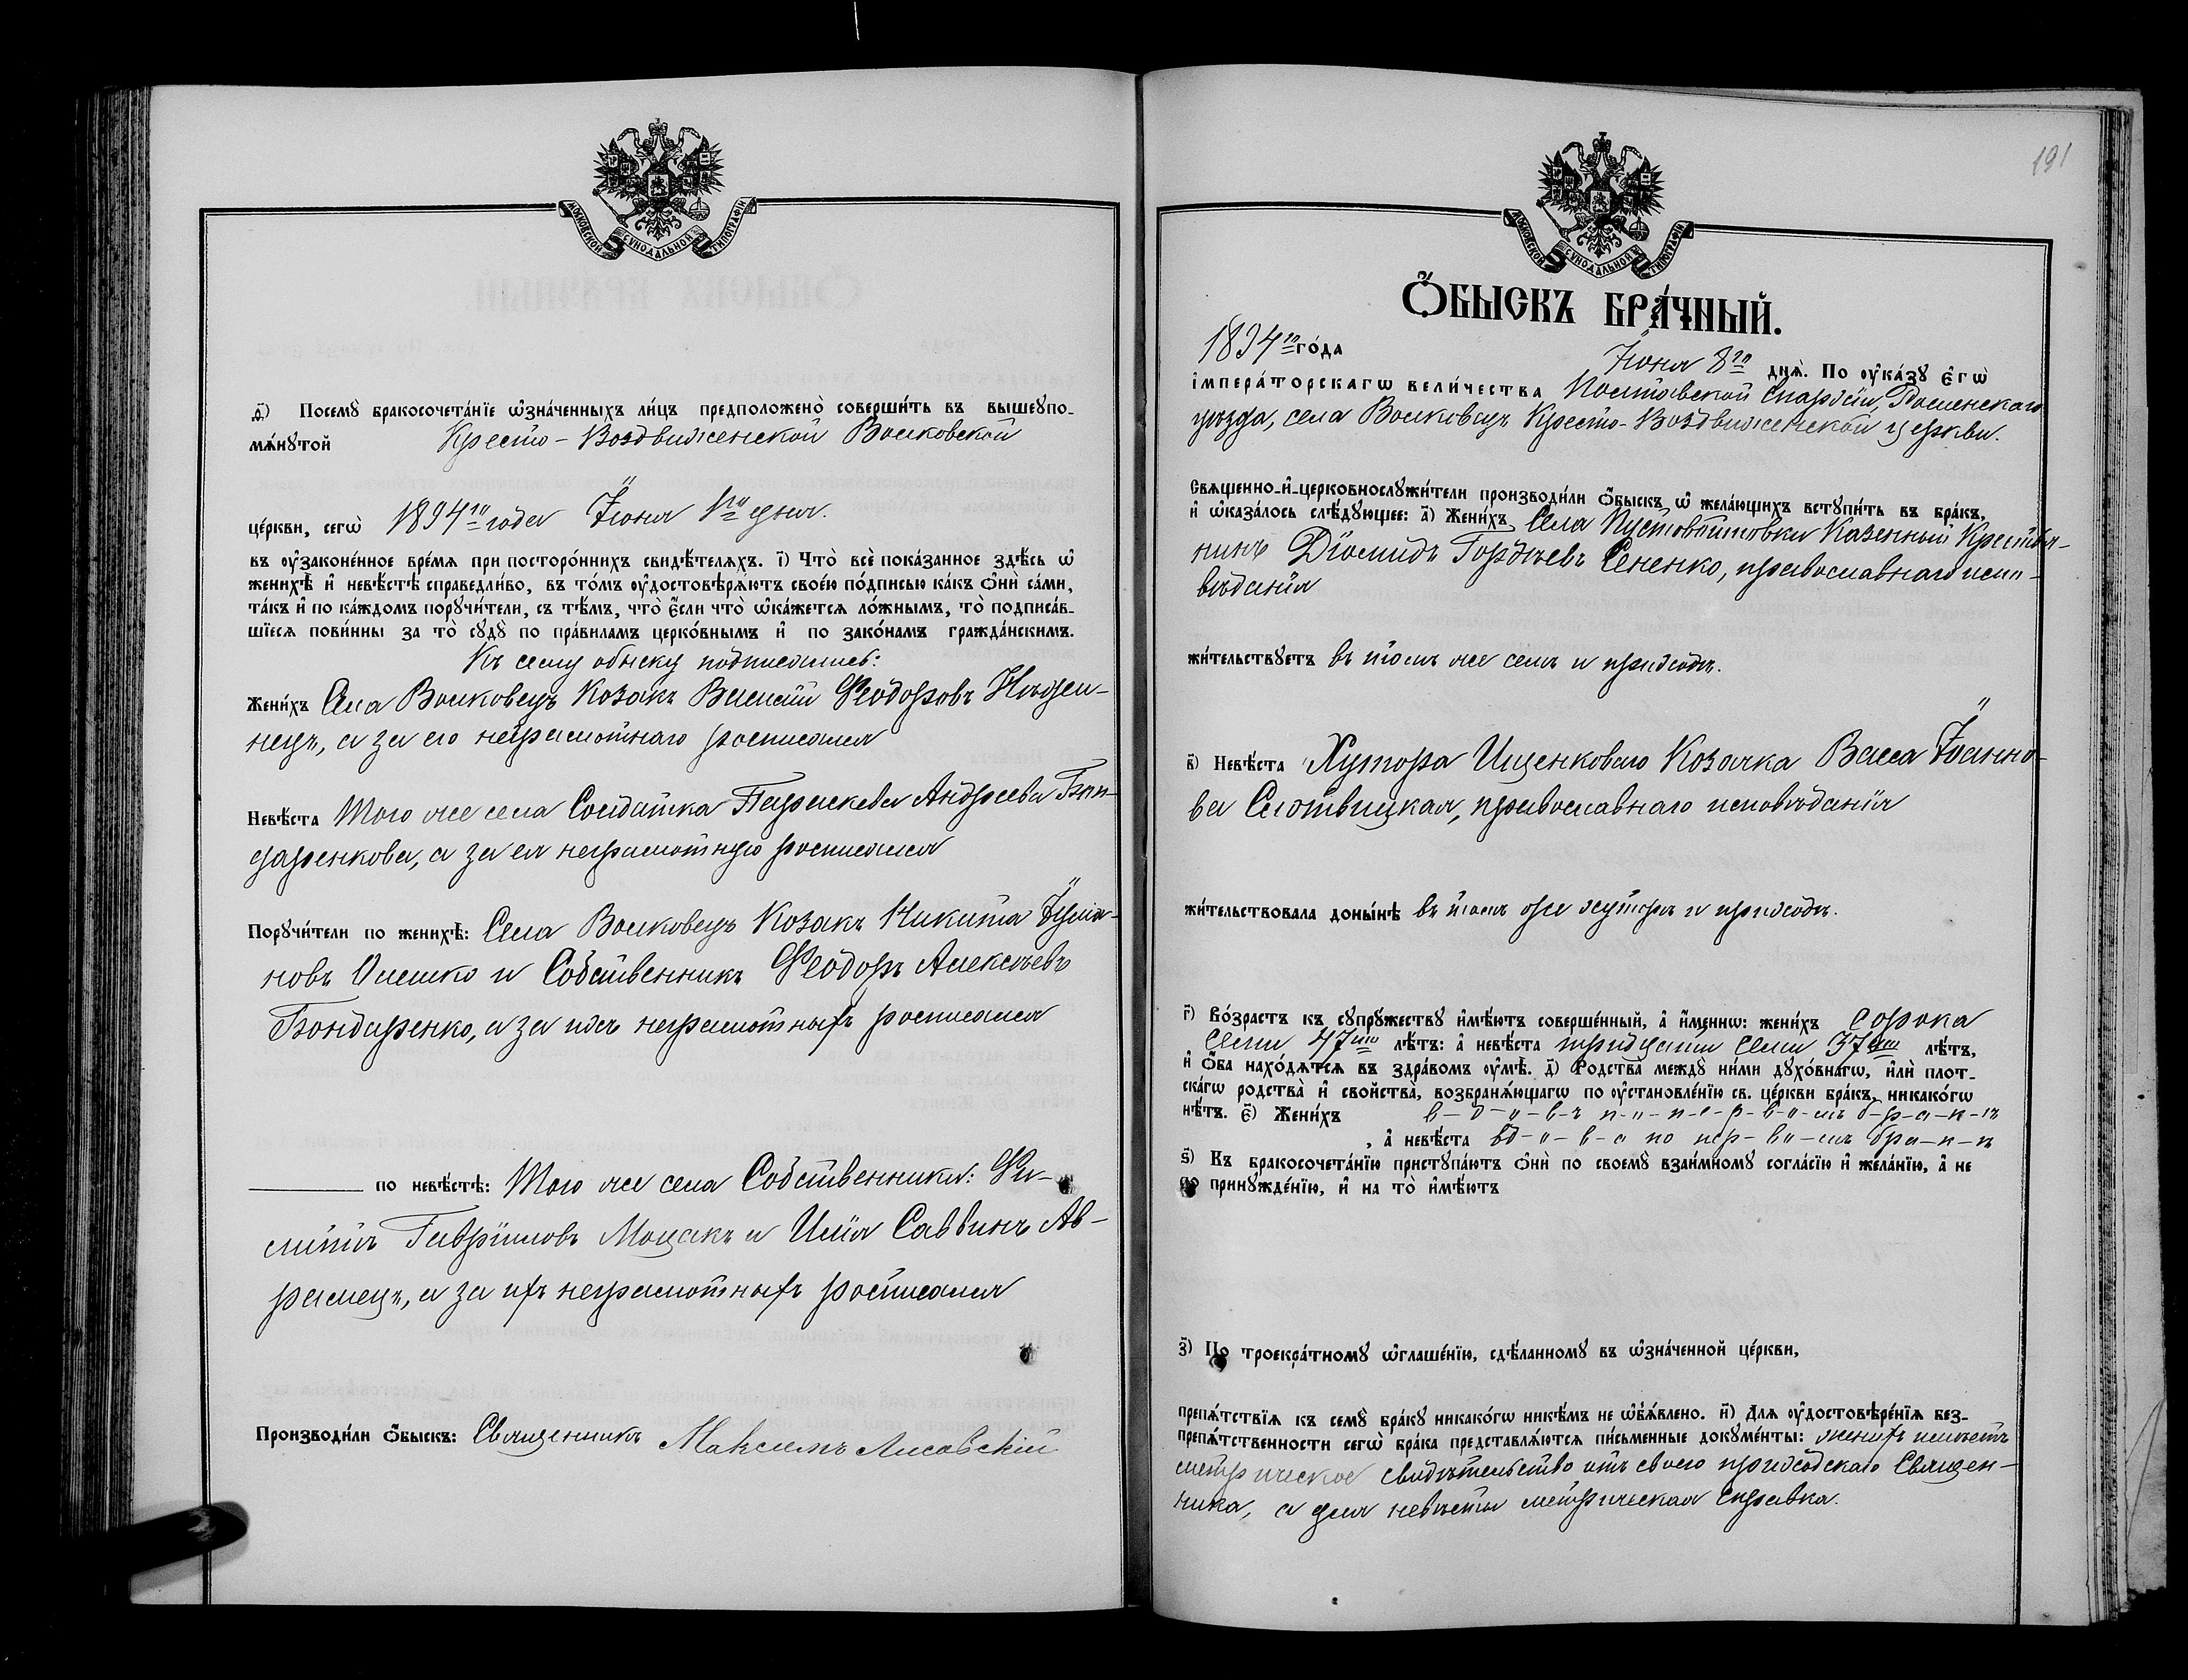 МОСКОВСКОЙ СѴНОДАЛЬНОЙ ТИПОГРАФІИ
д҃) Посемꙋ бракосочета́нїе ѡ҆зна́ченныхъ ли́цъ предположено̀ соверши́ть въ вышеꙋпо-
мѧ́нꙋтой Кресто-Воздвиженской Волковской
це́ркви, сегѡ̀ 1894го года Іюня 1го дня.
въ ᲂу҆зако́ненное вре́мѧ при посторо́ннихъ свидѣ́телѧхъ. і҃) Что̀ всѐ пока́занное здѣ́сь ѡ҆
женихѣ̀ и҆ невѣ́стѣ справедли́во, въ то́мъ ᲂу҆достовѣрѧ́ютъ свое́ю по́дписью ка́къ ѻ҆нѝ са́ми,
та́къ и҆ по ка́ждомъ порꙋчи́тели, съ тѣ́мъ, что̀ є҆́сли что̀ ѡ҆ка́жетсѧ ло́жнымъ, то̀ подписа́в-
шїесѧ пови́нны за то̀ сꙋдꙋ̀ по пра́виламъ церко́внымъ и҆ по зако́намъ гражда́нскимъ.
Къ сему обыску подписались:
Жени́хъ Села Волковецъ Козакъ Василій Ѳеодоровъ Нѣжи-
нецъ, а за его неграмотнаго росписался
Невѣ́ста Того же села Солдатка Параскева Андреева Бон-
даренкова, а за ея неграмотную росписался
Порꙋчи́тели по женихѣ̀: Села Волковецъ Козакъ Никита
новъ Олешко и Собственникъ Ѳеодоръ Алексѣевъ
Бондаренко, а за ихъ неграмотныхъ росписался
по невѣ́стѣ: Того же села Собственники: Фи-
липпъ Гавріиловъ Моцакъ и Илія Саввинъ Ав-
рамецъ, а за ихъ неграмотныхъ росписался
Производи́ли ѻ҆́быскъ: Священникъ Максимъ Лисовскій
191
МОСКОВСКОЙ СѴНОДАЛЬНОЙ ТИПОГРАФІИ
Ѻ҆́БЫСКЪ БРА́ЧНЫЙ.
1894го го́да Іюня 8го днѧ̀. По ᲂу҆ка́зꙋ є҆гѡ̀
і҆мпера́торскагѡ вели́чества Полтавской Епархіи, Роменскаго
уѣзда, села Волковецъ Кресто-Воздвиженской церкви.
Свѧще́нно-и҆-церковнослꙋжи́тели производи́ли ѻ҆́быскъ ѡ҆ жела́ющихъ встꙋпи́ть въ бра́къ,
и҆ ѡ҆каза́лось слѣ́дꙋющее: а҃) Жени́хъ Села Пустовойтовки Казенный Крестья-
нинъ Діомидъ Гордѣевъ Сененко, православнаго испо-
вѣданія
жи́тельствꙋетъ въ томъ же селѣ и приходѣ.
в҃) Невѣ́ста Хутора Ищенковаго Козачка Васса Іоанно-
ва Слотвицкая, православнаго исповѣданія
жи́тельствовала доны́нѣ въ томъ же хуторѣ и приходѣ.
г҃) Во́зрастъ къ сꙋпрꙋ́жествꙋ и҆мѣ́ютъ соверше́нный, а҆ и҆́меннѡ: жени́хъ сорока
семи 47ми лѣ́тъ: а҆ невѣ́ста тридцати семи 37ми лѣ́тъ,
и҆ ѻ҆́ба нахо́дѧтсѧ въ здра́вомъ ᲂу҆мѣ̀. д҃) Родства̀ междꙋ̀ ни́ми дꙋхо́внагѡ, и҆лѝ плот-
ска́гѡ родства̀ и҆ свойства̀, возбранѧ́ющагѡ по ᲂу҆становле́нїю св. це́ркви бра́къ, никако́гѡ
нѣ́тъ. є҃) Жени́хъ в-д-о-в-ъ п-о п-е-р-в-о-мъ б-р-а-к-ѣ
, а҆ невѣ́ста вд-о-в-а по пер-во-мъ бра-к-ѣ
ѕ҃) Въ бракосочета́нїю пристꙋпа́ютъ ѻ҆нѝ по своемꙋ̀ взаи́мномꙋ согла́сїю и҆ жела́нїю, а҆ не
по принꙋжде́нїю, и҆ на то̀ и҆мѣ́ютъ
з҃) По троекра́тномꙋ ѡ҆глаше́нїю, сдѣ́ланномꙋ въ ѡ҆зна́ченной це́ркви,
препѧ́тствїѧ къ семꙋ̀ бра́кꙋ никако́гѡ никѣ́мъ не ѡ҆б̾ѧ́влено. и҃) Длѧ ᲂу҆достовѣре́нїѧ без-
препѧ́тственности сегѡ̀ бра́ка представлѧ́ютсѧ пи́сьменные докꙋме́нты: женихъ имѣетъ
метрическое свидѣтельство отъ своего приходскаго Священ-
ника, а для невѣсты метрическая справка.